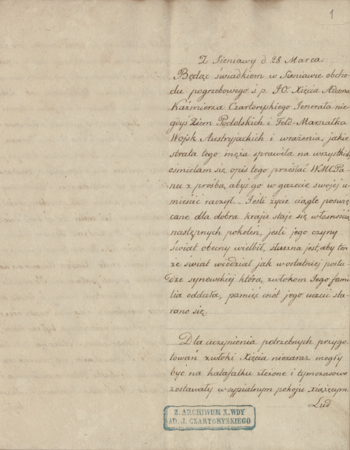 1
Z Sieniawy d. 28 Marca.
Będąc świadkiem w Sieniawie obcho-
du pogrzebowego ś.p. JO. Xięcia Adama
Kazimierza Czartoryskiego Generała nie-
gdyś Ziem Podolskich i Feld-Marszałka
Wojsk Austryjackich i wrażenia, jakie
strata tego męża sprawiła na wszystkich
ośmielam się opis tego przesłać WMCPa-
nu z prośbą, abyś go w gazecie swojej u-
mieścić raczył. Jeśli życie ciągle poświę-
cane dla dobra kraju staje się własnością
następnych pokoleń, jeśli jego czyny
świat obecny wielbił, słuszna jest, aby ten-
że świat wiedział jak w ostatniej posłu-
dze synowskiej którą zwłokom Jego fami-
lia oddała, pamięć cnót jego uczcić sta-
rano się.
Dla uczynienia potrzebnych przygo-
towań zwłoki Xięcia nieraz mogły
być na katafalku złożone i tymczasowo
zostawały w sypialnym pokoju
Lud
Z ARCHIWUM X. WDY
AD. J. CZARTORYSKIEGO